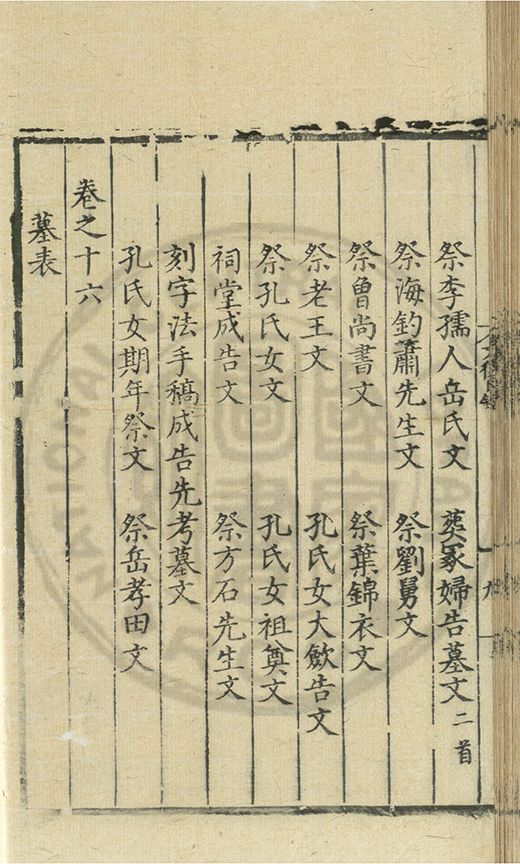 祭李孺人岳氏文 葬冢婦告墓文二首
祭海釣蕭先生文 祭劉舅文
祭魯尚書文 祭葉錦衣文
祭老王文 孔氏女大歛告文
祭孔氏女文 孔氏女祖奠文
祠堂成告文 祭方石先生文
刻字法手稿成告先考墓文
孔氏女期年祭文 祭岳孝田文
卷之十六
墓表